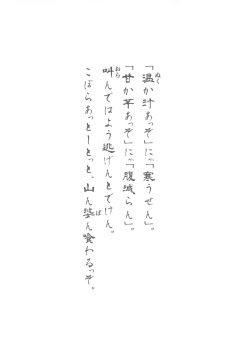 「温か汁あっぞ」にゃ「寒うせん」。
「甘か芋あっぞ」にゃ「腹減らん」。
叫んではよう逃げんとでけん。
こばらあっとーとっと、山ん婆ん喰わるっぞ。